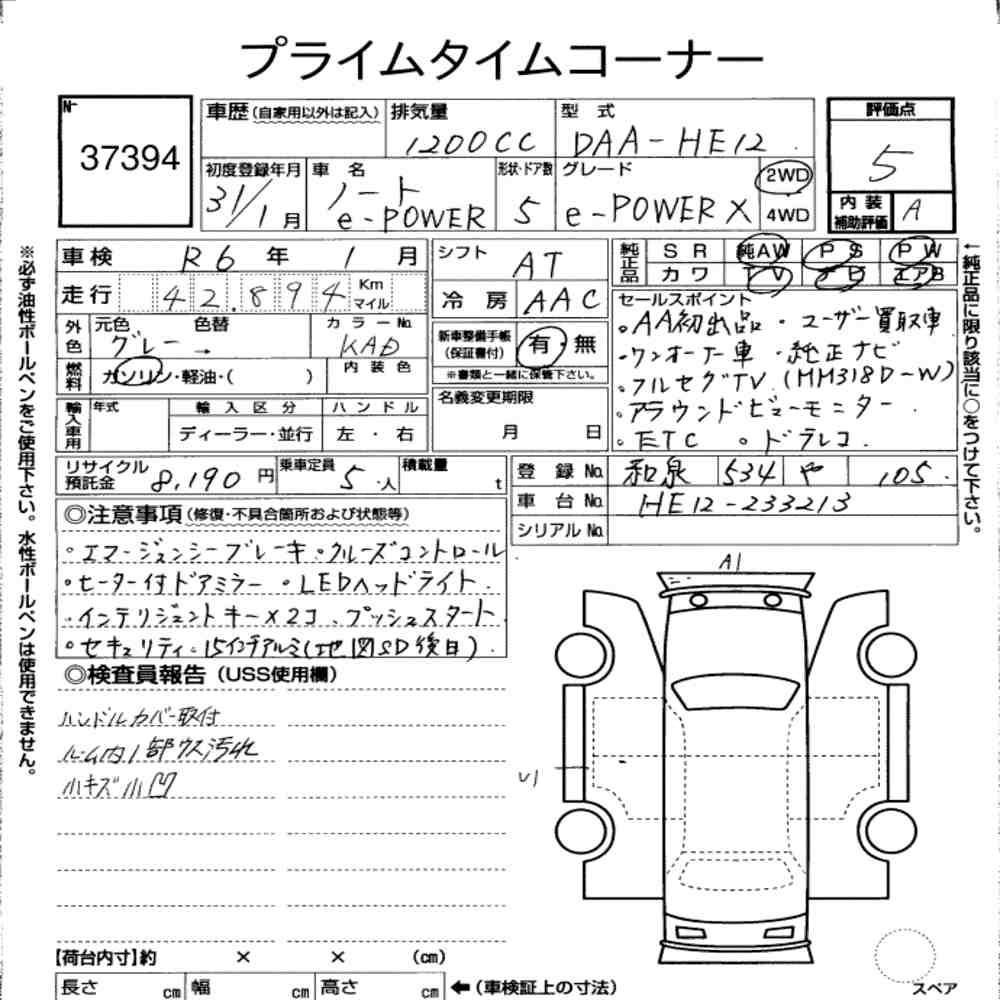 プライムタイムコーナー
№ 37394
車歴(自家用以外は記入) 排気量 1200CC 型式 DAA-HE12
評価点 5
初度登録年月 31/1月 車名 ノート e-POWER 形状・ドア数 5 グレード e-POWER X 2WD 4WD
内装補助評価 A
車検 R6年 1月 シフト AT
走行 42.894 Km マイル 冷房 AAC
純正品 SR 純AW PS PW
カワ TV ナビ エアB
外色 元色 グレー → 色替 カラーNo. KAD 内装色
新車整備手帳(保証書付) 有・無
※書類と一緒に保管下さい。
燃料 ガソリン・軽油・( )
名義変更期限 月 日
輸入車用 年式 輸入区分 ハンドル
ディーラー・並行 左・右
セールスポイント
・AA初出品 ・ユーザー買取車
・ワンオーナー車 ・純正ナビ
・フルセグTV (MM318D-W)
・アラウンドビューモニター
・ETC 。ドラレコ
リサイクル預託金 8,190円 乗車定員 5人 積載量 t
登録No. 和泉 534 や 105
車台No. HE12-233213
シリアルNo.
◎注意事項(修復・不具合箇所および状態等)
・エマージェンシーブレーキ ・クルーズコントロール
・ヒーター付ドアミラー ・LEDヘッドライト
・インテリジェントキー×2コ、プッシュスタート
・セキュリティ・15インチアルミ(地図SD後日)
◎検査員報告(USS使用欄)
ハンドルカバー取付
ルーム内1部ウス汚れ
小キズ小凹
A1
U1
【荷台内寸】約 × × (cm)
長さ cm 幅 cm 高さ cm ←(車検証上の寸法)
スペア
※必ず油性ボールペンをご使用下さい。水性ボールペンは使用できません。
←純正品に限り該当に○をつけて下さい。